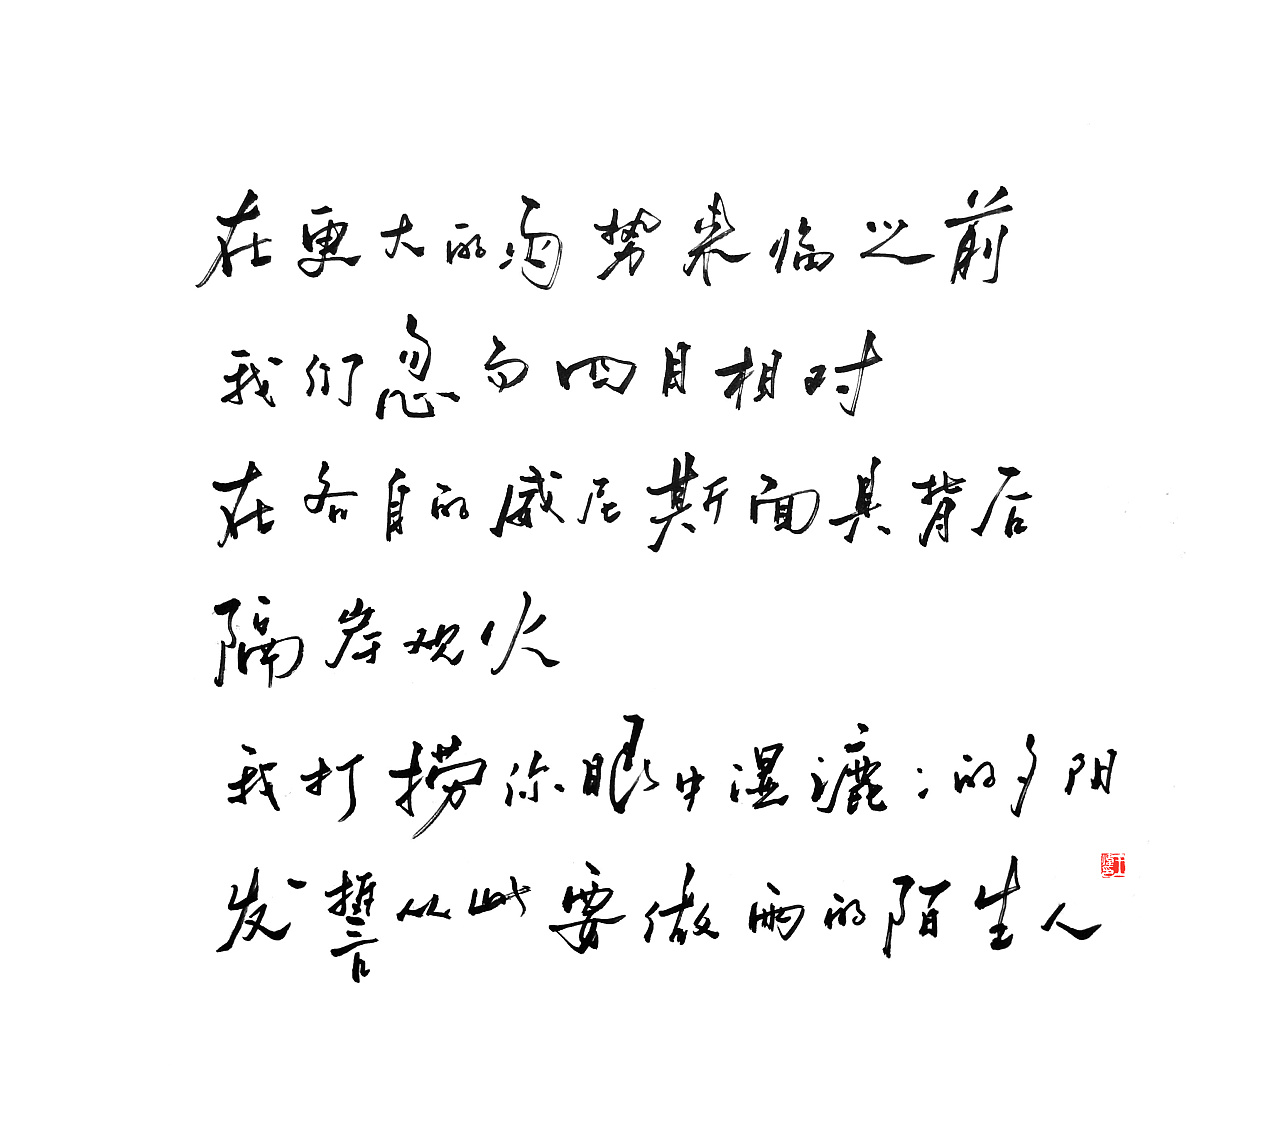 在更大的雨势来临之前
我们忽而四目相对
在各自的威尼斯面具背后
隔岸观火
我打捞你眼中湿漉々的夕阴
发誓从此要做雨的陌生人